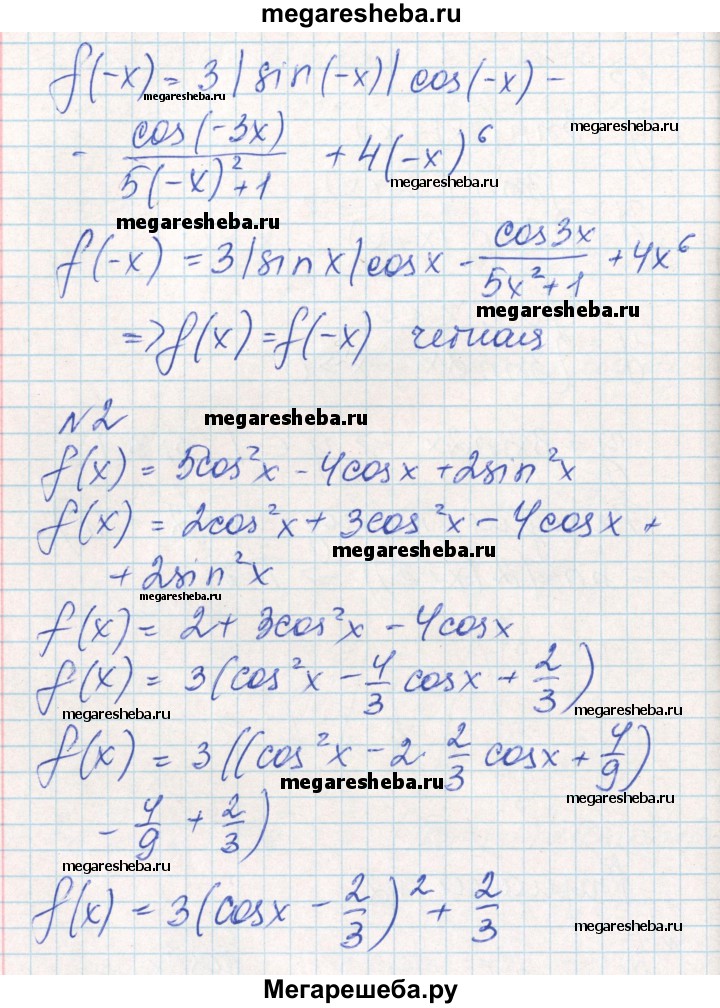 megaresheba.ru
f(-x) = 3|sin(-x)|cos(-x) -
megaresheba.ru
megaresheba.ru
- cos(-3x)/(5(-x)²+1) + 4(-x)⁶
megaresheba.ru
megaresheba.ru
f(-x) = 3|sin x|cosx - cos3x/(5x²+1) + 4x⁶
megaresheba.ru
=> f(x) = f(-x) четная
№2
megaresheba.ru
f(x) = 5cos²x - 4cosx + 2sin²x
f(x) = 2cos²x + 3cos²x - 4cosx +
megaresheba.ru
+ 2sin²x
megaresheba.ru
f(x) = 2 + 3cos²x - 4cosx
f(x) = 3(cos²x - 4/3 cosx + 2/3)
megaresheba.ru
megaresheba.ru
f(x) = 3((cos²x - 2 · 2/3 cosx + 4/9)
megaresheba.ru
megaresheba.ru
- 4/9 + 2/3)
megaresheba.ru
f(x) = 3(cosx - 2/3)² + 2/3
megaresheba.ru
Мегарешеба.ру